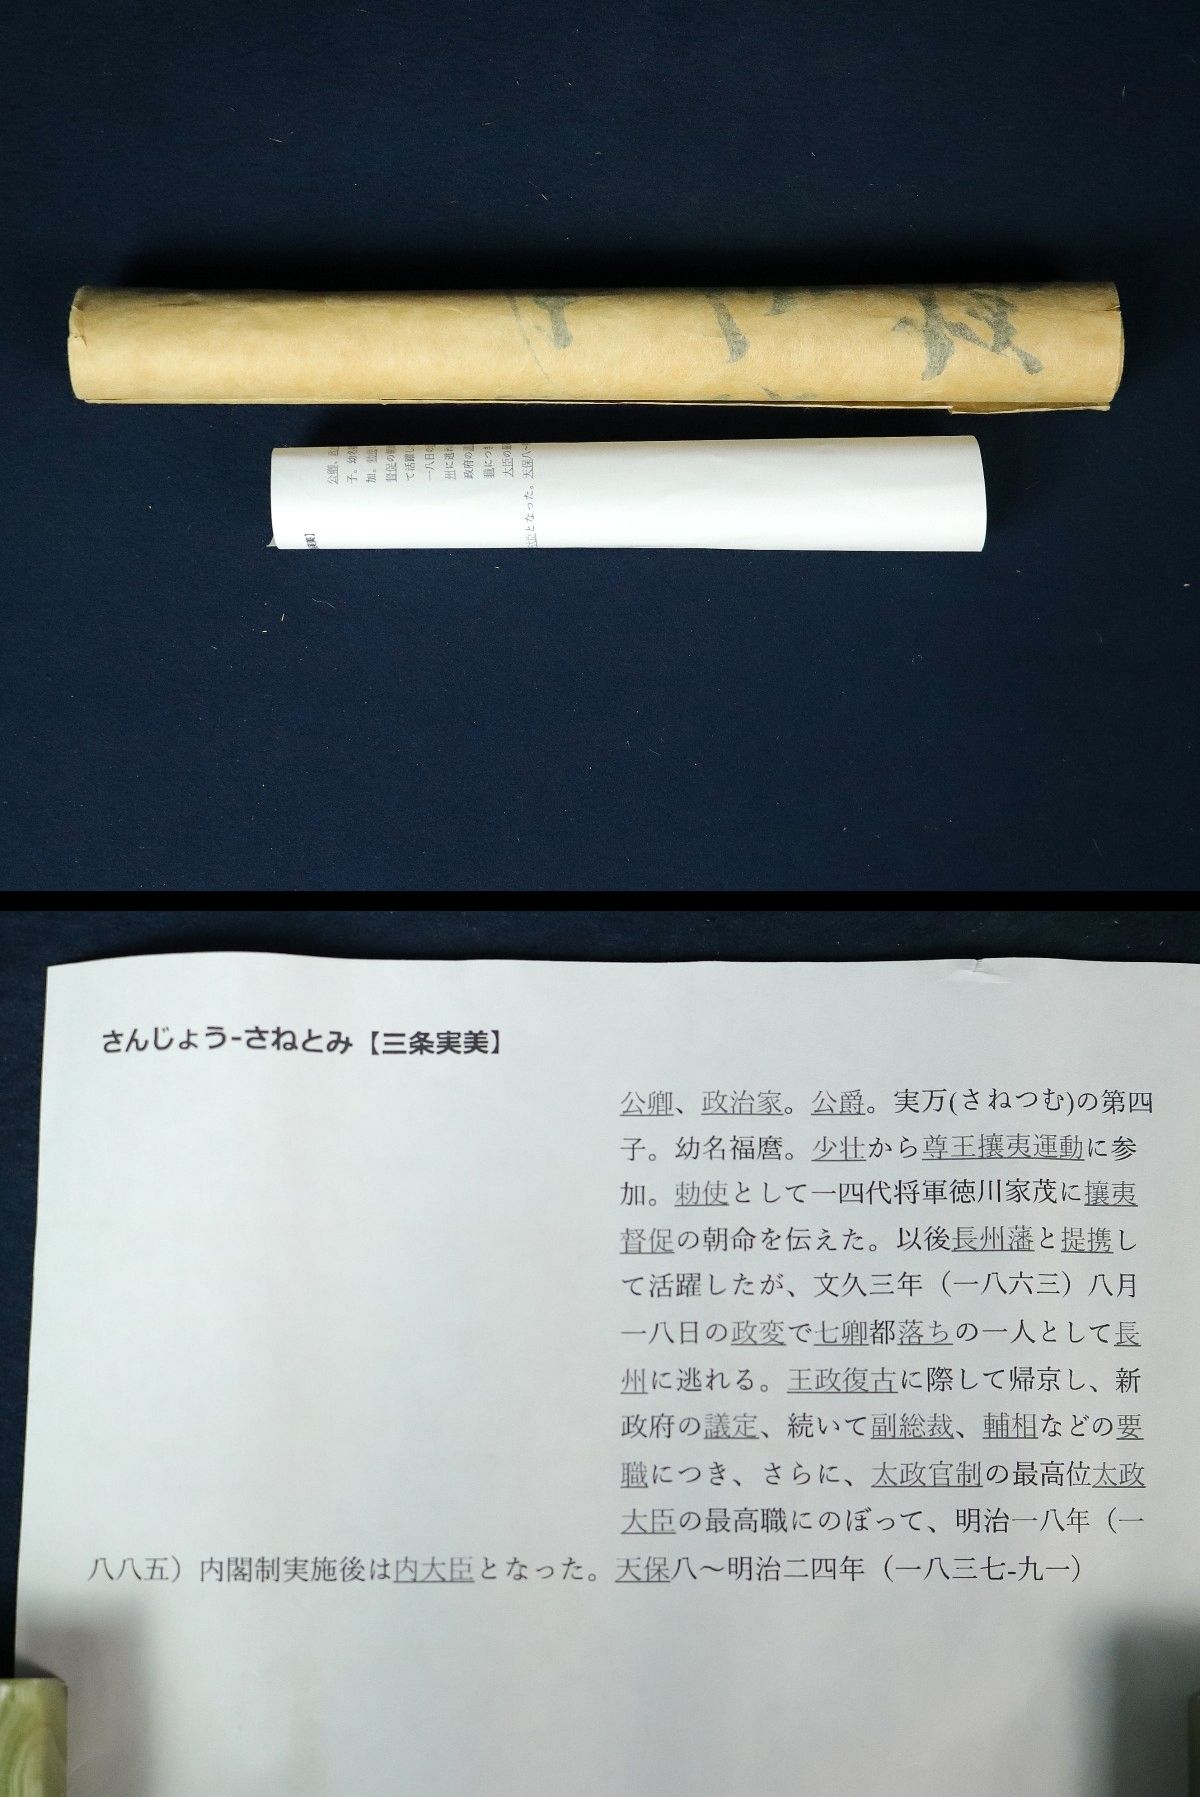 公卿、政
子。幼名
加。勅使
督促の朝
て活躍し
一八日の
州に逃れ
政府の議
職につき
大臣の最
内大臣となった。天保八～
さんじょう-さねとみ【三条実美】
公卿、政治家。公爵。実万(さねつむ)の第四
子。幼名福麿。少壮から尊王攘夷運動に参
加。勅使として一四代将軍徳川家茂に攘夷
督促の朝命を伝えた。以後長州藩と提携し
て活躍したが、文久三年（一八六三）八月
一八日の政変で七卿都落ちの一人として長
州に逃れる。王政復古に際して帰京し、新
政府の議定、続いて副総裁、輔相などの要
職につき、さらに、太政官制の最高位太政
大臣の最高職にのぼって、明治一八年（一
八八五）内閣制実施後は内大臣となった。天保八～明治二四年（一八三七-九一）